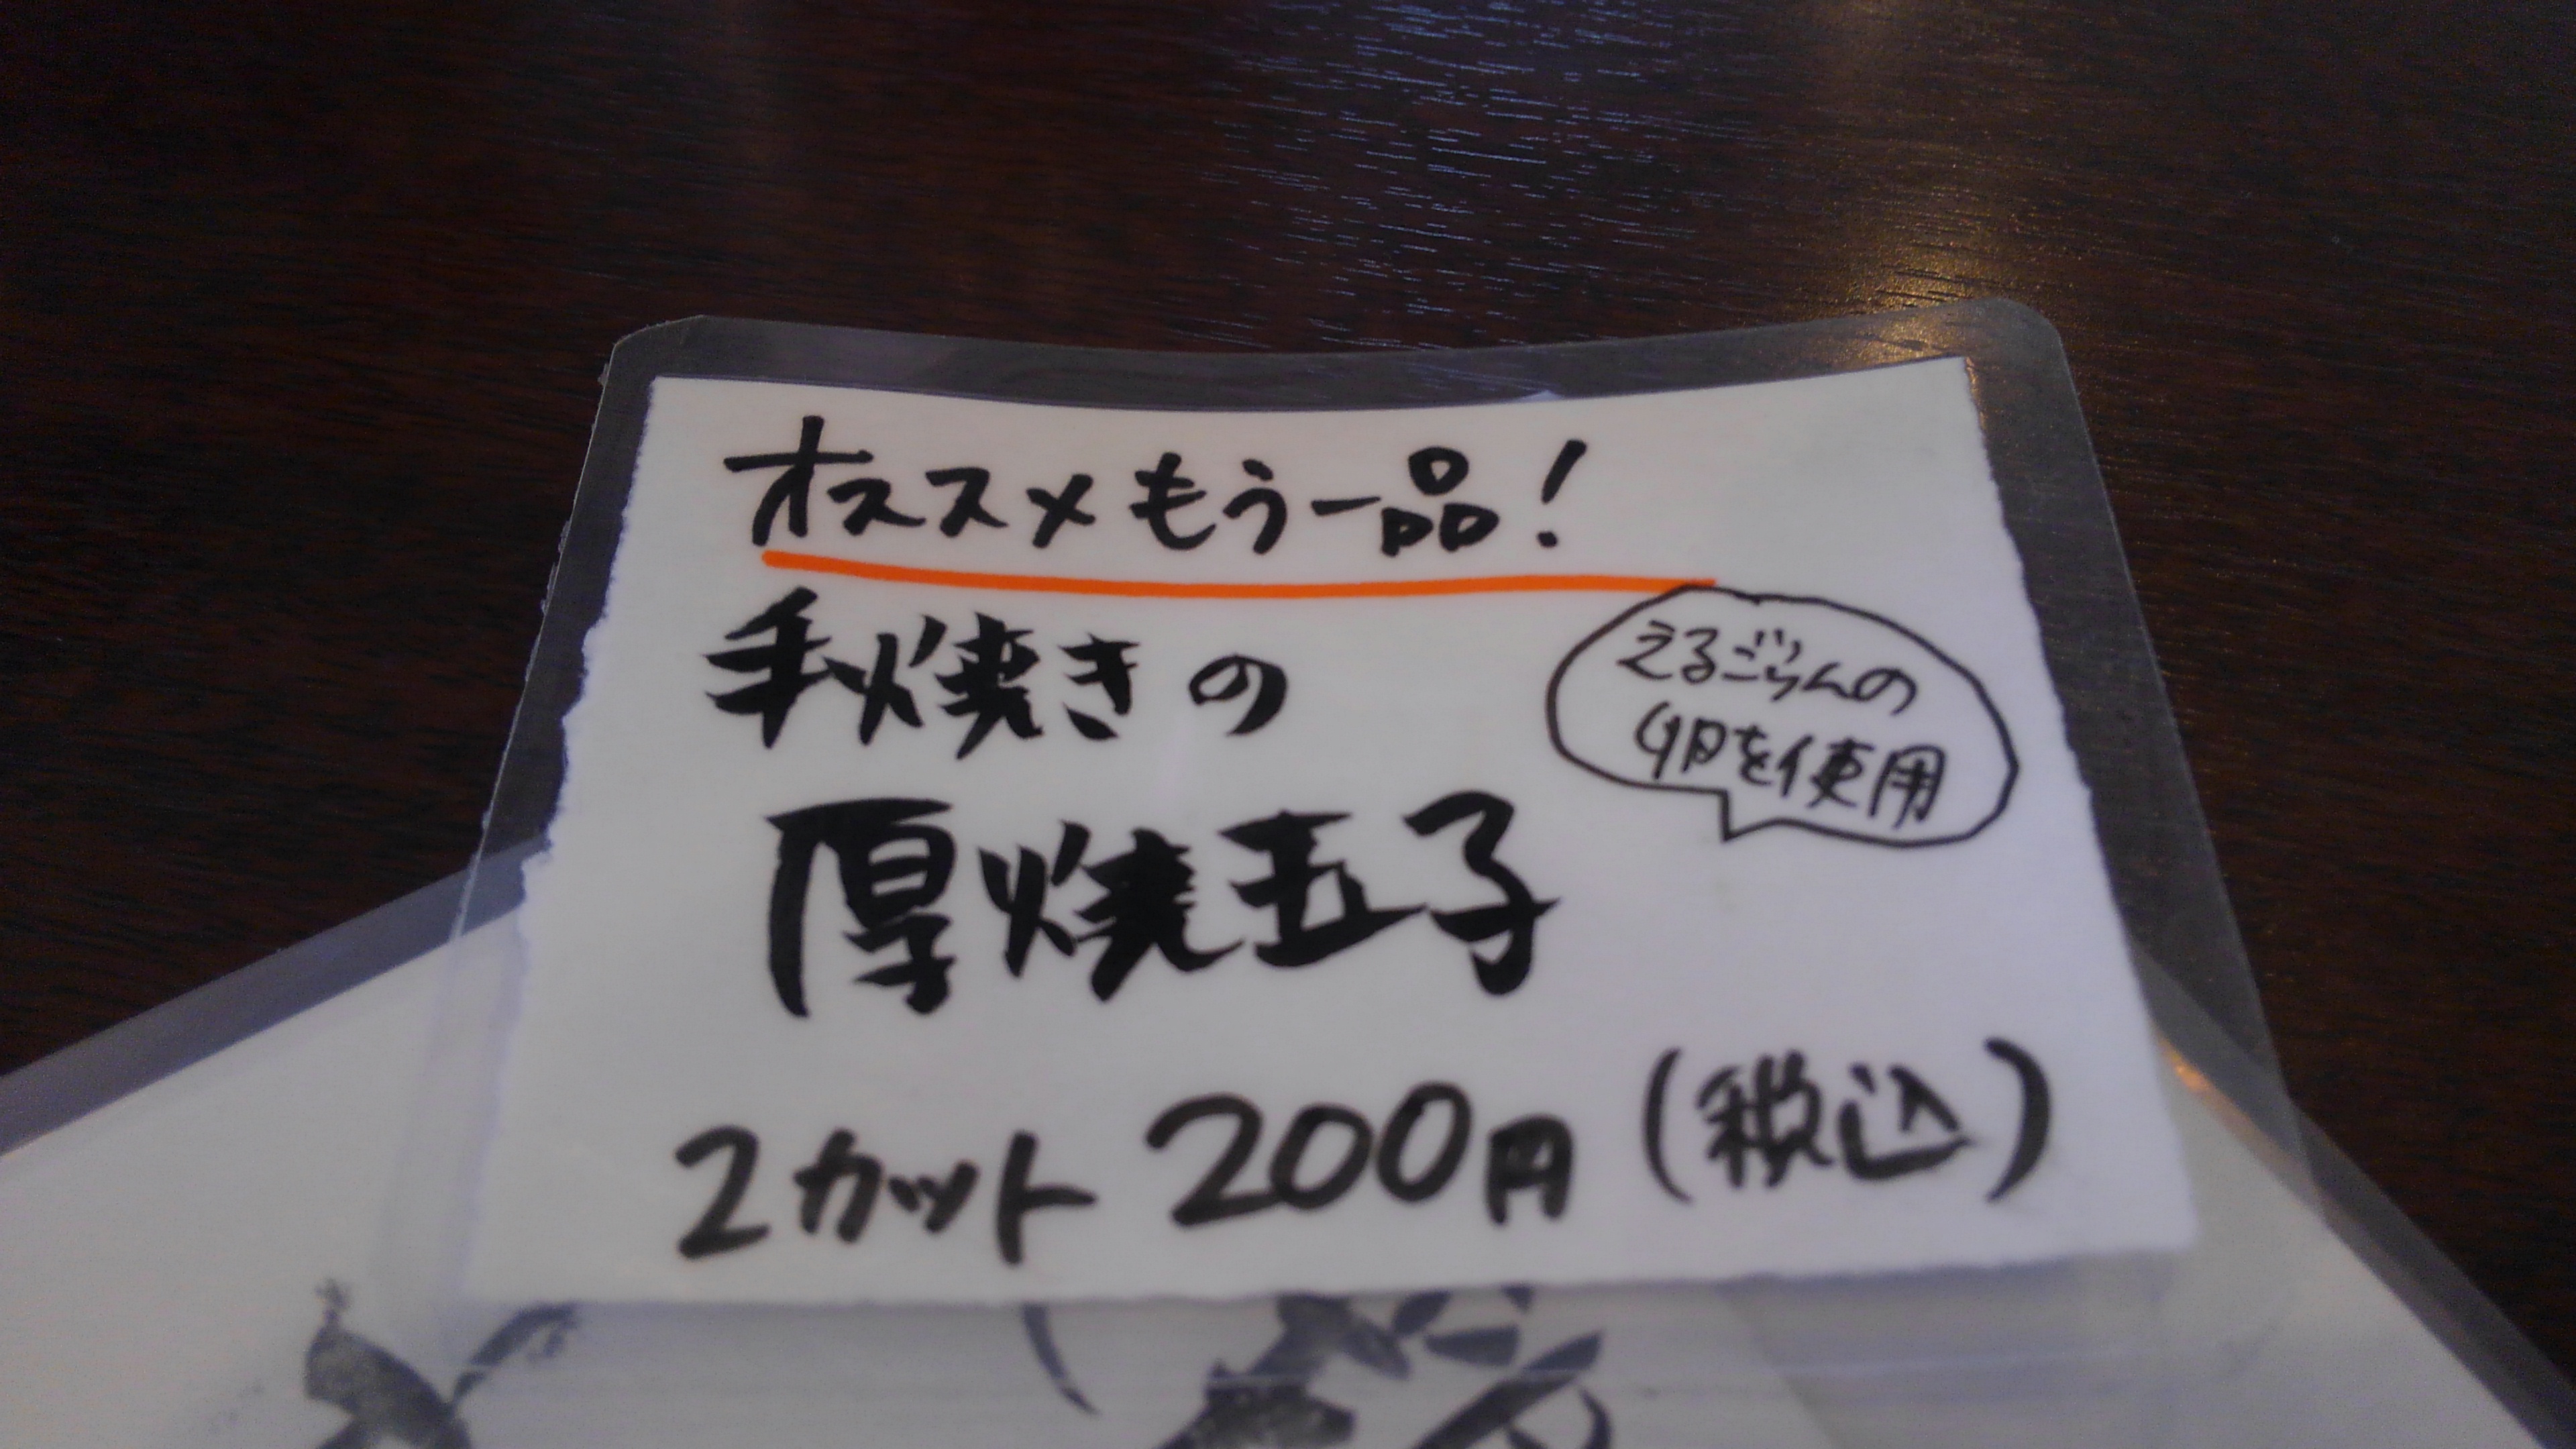 オススメもう一品!
手焼きの
えるごらんの
卵を使用
厚焼玉子
2カット 200円 (税込)